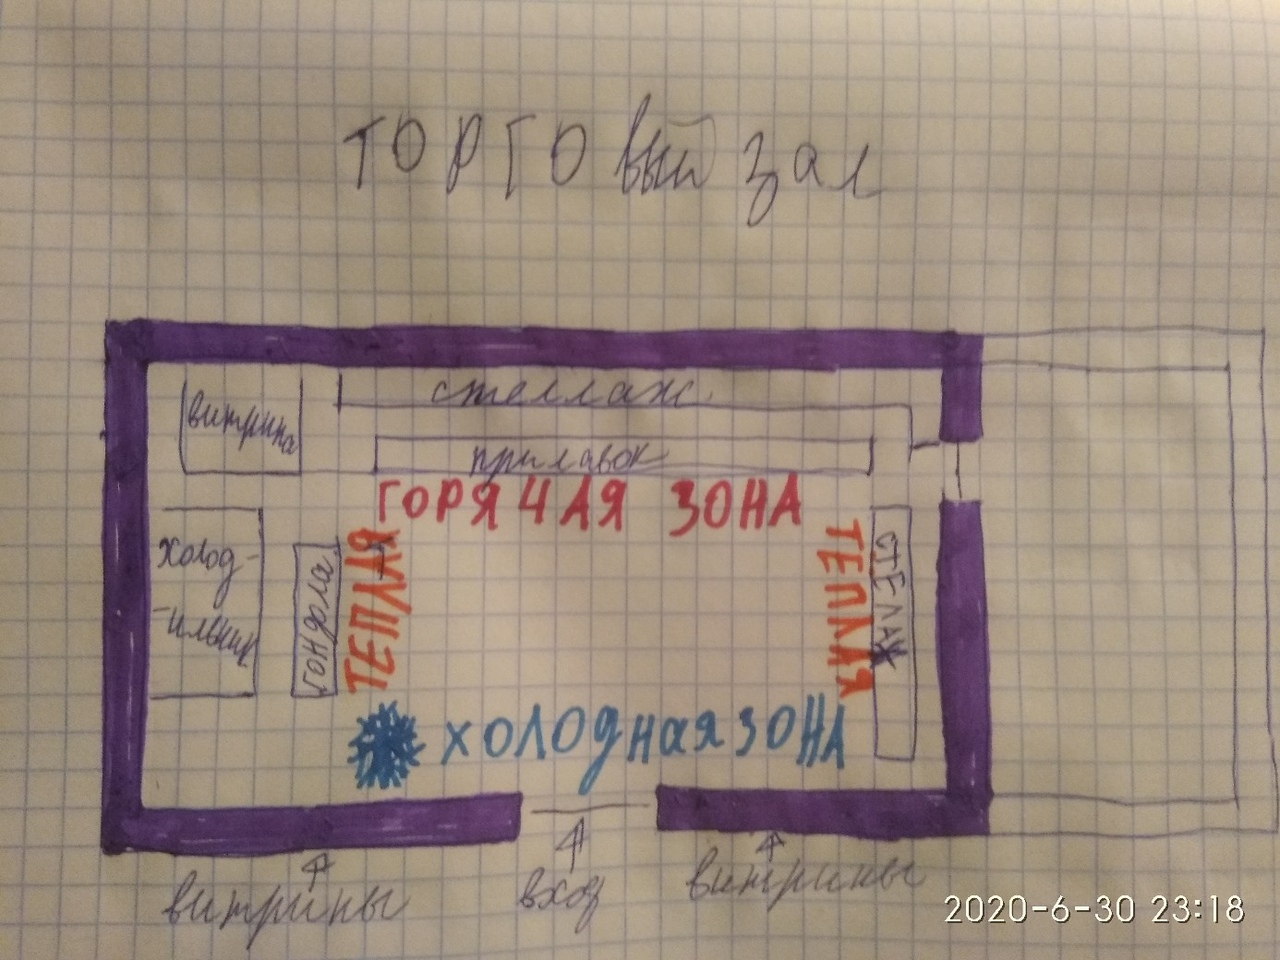 ТОРГОвый зал
стеллаж
витрина
прилавок
ГОРЯЧАЯ ЗОНА
холод-
-ильник
гондола
ТЕПЛАЯ
ТЕПЛАЯ
СТЕЛАЖ
ХОЛОДНАЯ ЗОНА
витрины
вход
витрины
2020-6-30 23:18